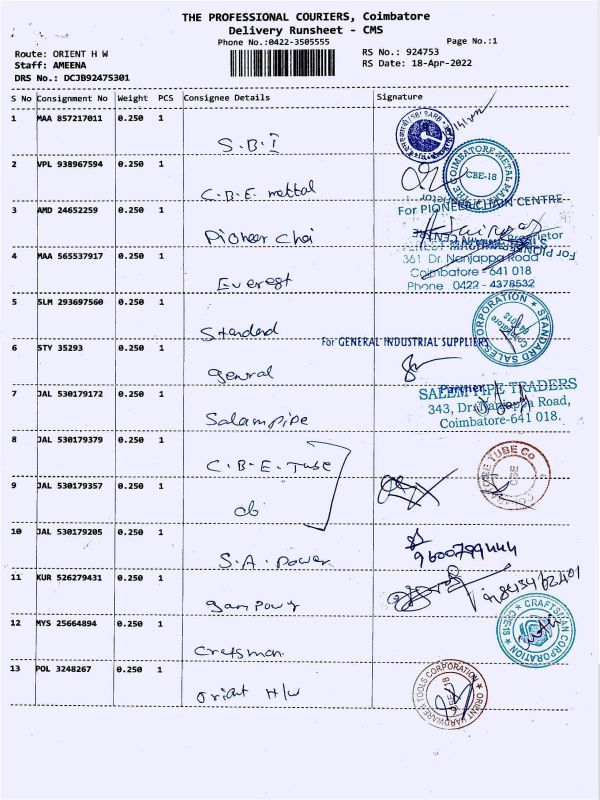 THE PROFESSIONAL COURIERS, Coimbatore
Delivery Runsheet - CMS
Phone No.:0422-3505555
Page No.:1
Route: ORIENT H W
RS No.: 924753
Staff: AMEENA
RS Date: 18-Apr-2022
DRS No.: DCJB92475301
S No Consignment No Weight PCS Consignee Details Signature
1 MAA 857217011 0.250 1
S.B.I
2 VPL 938967594 0.250 1
C.B.E. mettal
CBE-18
COIMBATORE METAL
3 AMD 24652259 0.250 1
Pioneer Chai
For PIONEER CHAIN CENTRE
Proprietor
4 MAA 565537917 0.250 1
Everest
361 Dr. Nanjappa Road
Coimbatore - 641 018
Phone 0422 - 4378532
5 SLM 293697560 0.250 1
Standard
STANDARD SALES CORPORATION
Coimbatore
641018
6 STY 35293 0.250 1
genral
For GENERAL INDUSTRIAL SUPPLIERS
Partner
7 JAL 530179172 0.250 1
Salampipe
SALEM PIPE TRADERS
343, Dr. Nanjappa Road,
Coimbatore-641 018.
8 JAL 530179379 0.250 1
C.B.E. Tube
TUBE Co
9 JAL 530179357 0.250 1
do
10 JAL 530179205 0.250 1
S.A. Power
9600799444
11 KUR 526279431 0.250 1
12 MYS 25664894 0.250 1
Craftsman
CRAFTSMAN CORPORATION
CBE-18
13 POL 3248267 0.250 1
Orient H/W
ORIENT HARDWARE & TOOLS CORPORATION